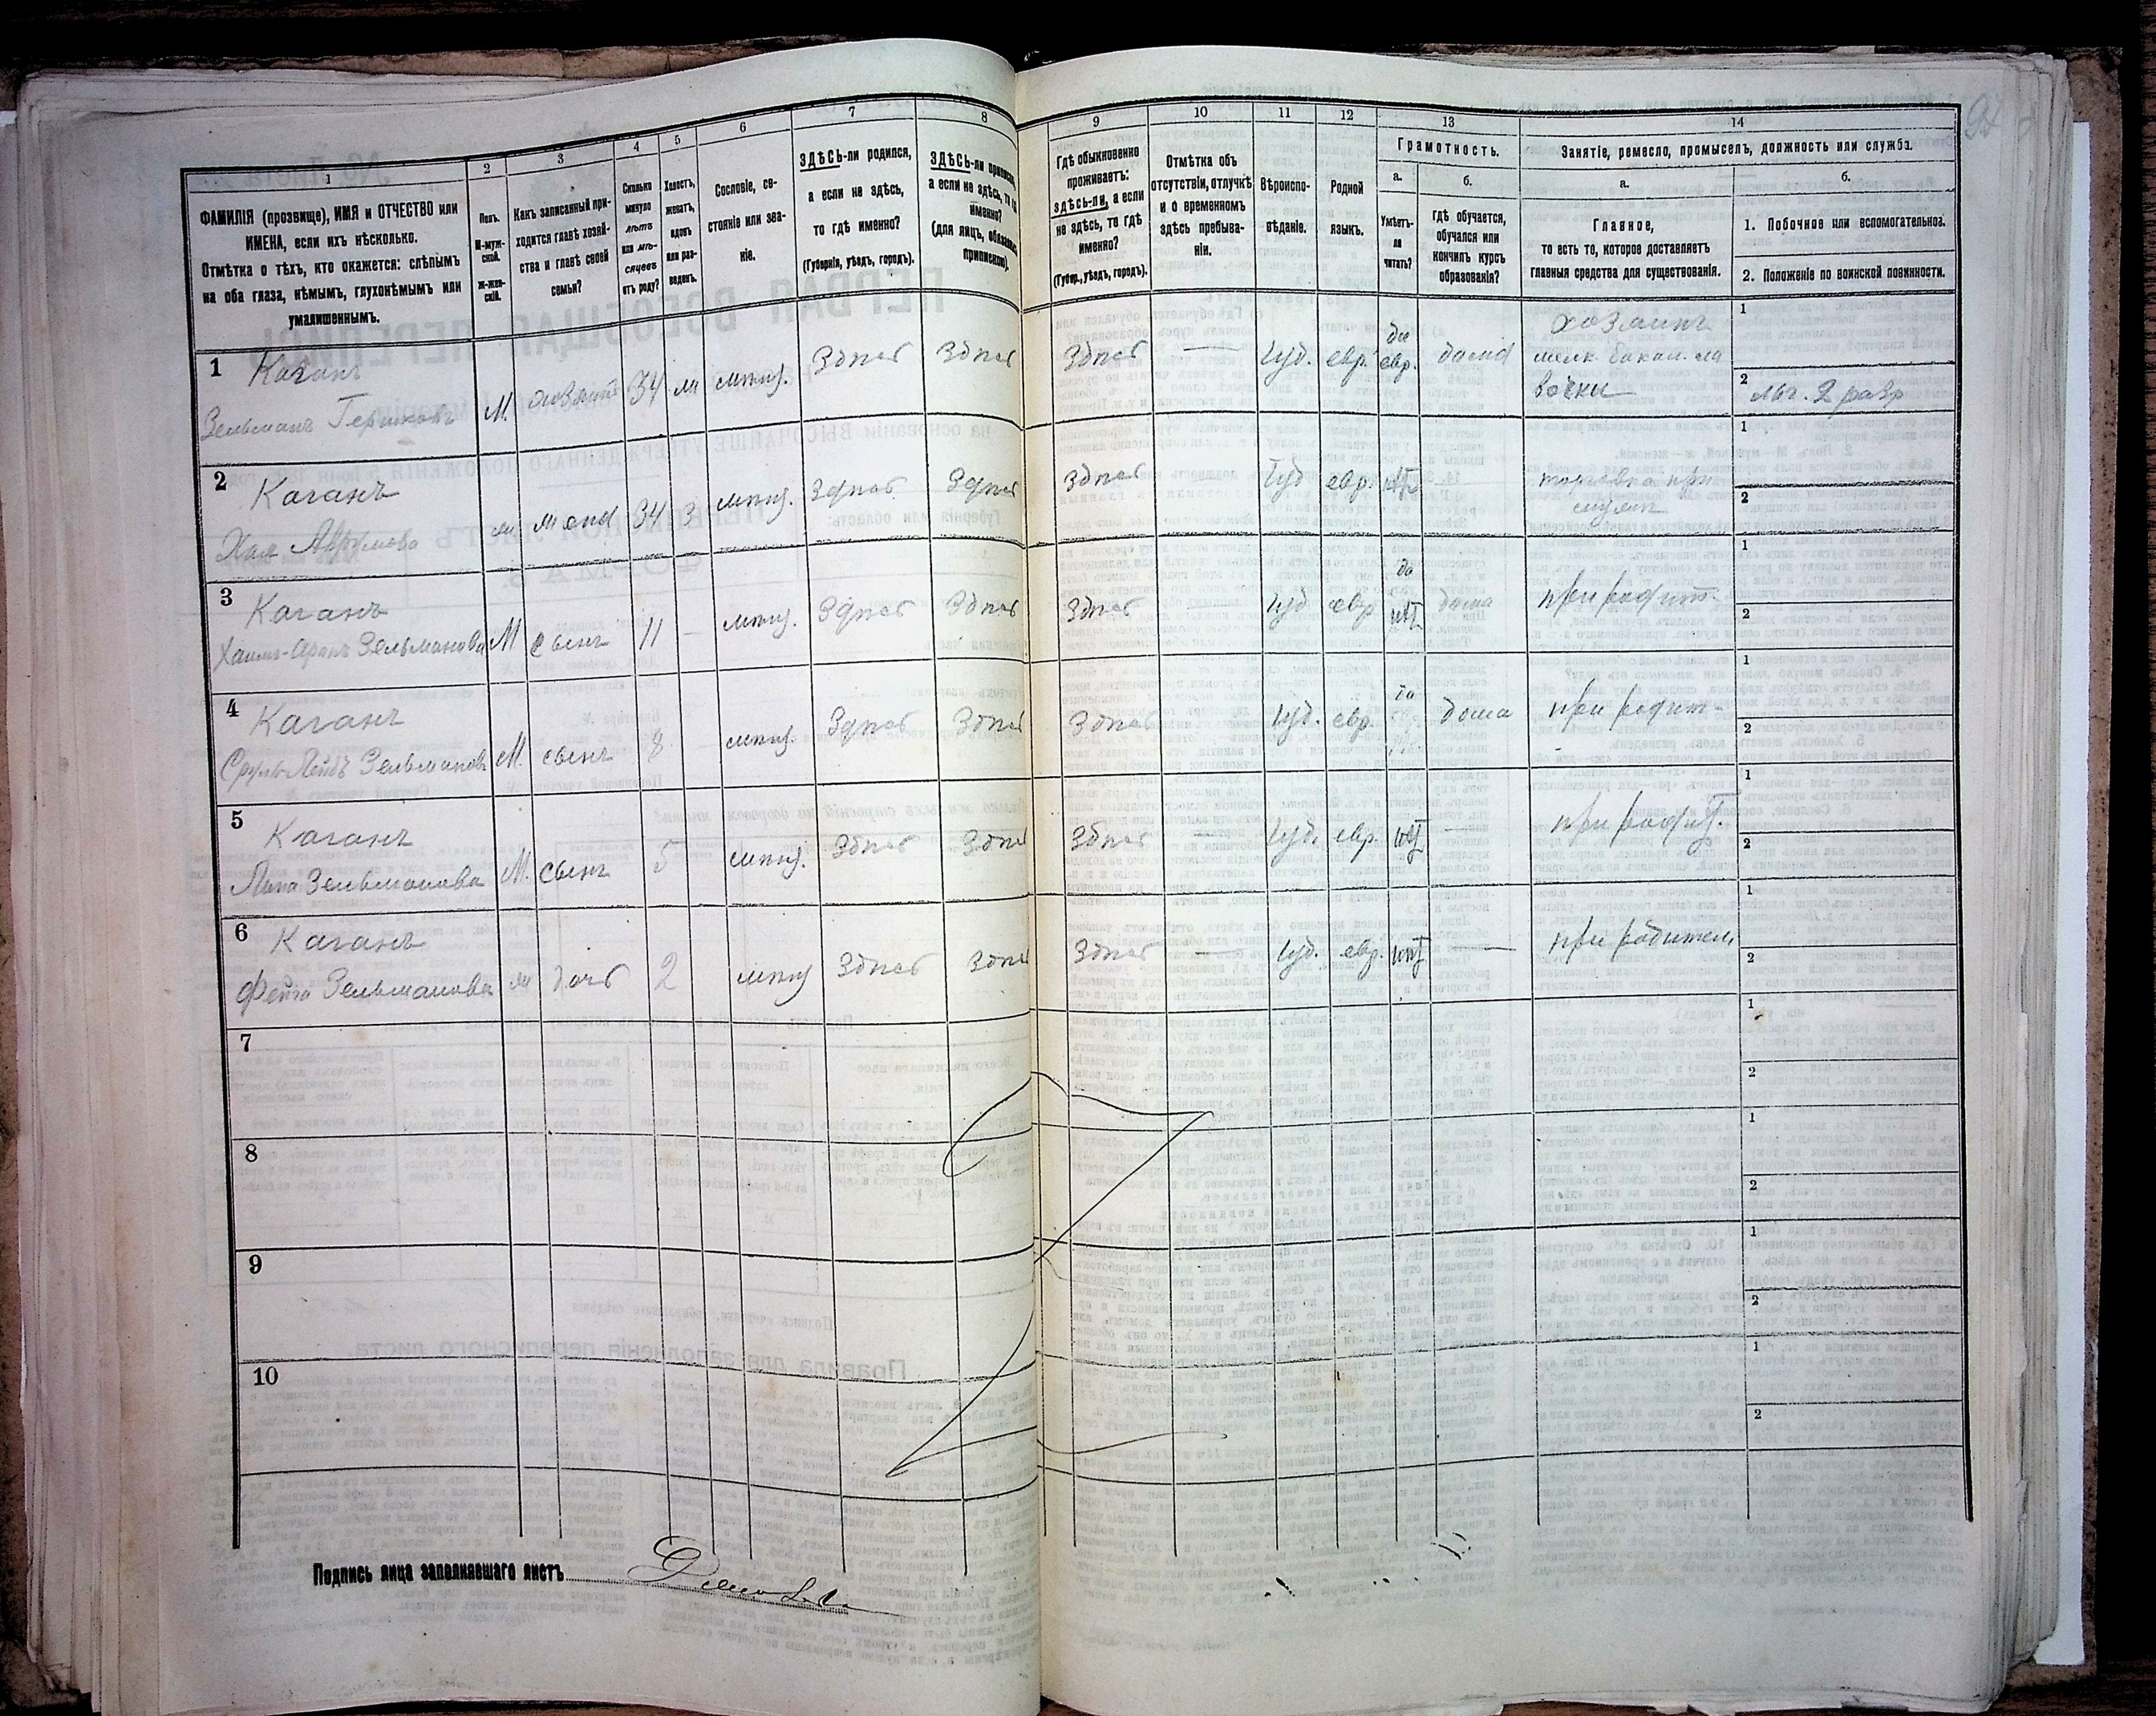 1
ФАМИЛІЯ (прозвище), ИМЯ и ОТЧЕСТВО или
ИМЕНА, если ихъ нѣсколько.
Отмѣтка о тѣхъ, кто окажется: слѣпымъ
на оба глаза, нѣмымъ, глухонѣмымъ или
умалишеннымъ.
2
Полъ.
М-муж-
ской.
Ж-жен-
скій.
3
Какъ записанный при-
ходится главѣ хозяй-
ства и главѣ своей
семьи?
4
Сколько
минуло
лѣтъ
или мѣ-
сяцевъ
отъ роду?
5
Холостъ,
женатъ,
вдовъ
или раз-
веденъ.
6
Сословіе, со-
стояніе или зва-
ніе.
7
ЗДѢСЬ-ли родился,
а если не здѣсь,
то гдѣ именно?
(Губернія, уѣздъ, городъ).
8
ЗДѢСЬ-ли приписанъ,
а если не здѣсь, то гдѣ
именно?
(для лицъ, обязанныхъ
припискою).
9
Гдѣ обыкновенно
проживаетъ:
здѣсь-ли, а если
не здѣсь, то гдѣ
именно?
(Губер., уѣздъ, городъ).
10
Отмѣтка объ
отсутствіи, отлучкѣ
и о временномъ
здѣсь пребыва-
ніи.
11
Вѣроиспо-
вѣданіе.
12
Родной
языкъ.
13
Грамотность.
а.
Умѣетъ-
ли
читать?
б.
гдѣ обучается,
обучался или
кончилъ курсъ
образованія?
14
Занятіе, ремесло, промыселъ, должность или служба.
а.
Главное,
то есть то, которое доставляетъ
главныя средства для существованія.
б.
1. Побочное или вспомогательное.
2. Положеніе по воинской повинности.
1 Каганъ
Зельманъ Гершковъ М. хозяинъ 34 ж мѣщ. Здѣсь Здѣсь Здѣсь — Iуд. евр. да евр. дома
хозяинъ
мелк. бакал. ла
вочки
1
2 льг. 2 разр
2 Каганъ
Хая ж жена 34 з мѣщ. Здѣсь Здѣсь Здѣсь Iуд евр. нѣтъ
торговка при
мужѣ
1
2
3 Каганъ
Хаимъ-Аронъ Зельмановъ М сынъ 11 — мѣщ. Здѣсь Здѣсь Здѣсь — Iуд евр да дома при родит.
1
2
4 Каганъ
Сруль-Лейбъ Зельмановъ М. сынъ 8 мѣщ. Здѣсь Здѣсь Здѣсь Iуд. евр. да дома при родит.
1
2
5 Каганъ
Зельманова М. сынъ 5 мѣщ. Здѣсь Здѣсь Здѣсь — Iуд. евр. нѣтъ — при родит.
1
2
6 Каганъ
Фейга Зельманова ж дочь 2 мѣщ Здѣсь Здѣсь Здѣсь — Iуд. евр. нѣтъ — при родител.
1
2
7
1
2
8
1
2
9
1
2
10
1
2
Подпись лица заполнявшаго листъ